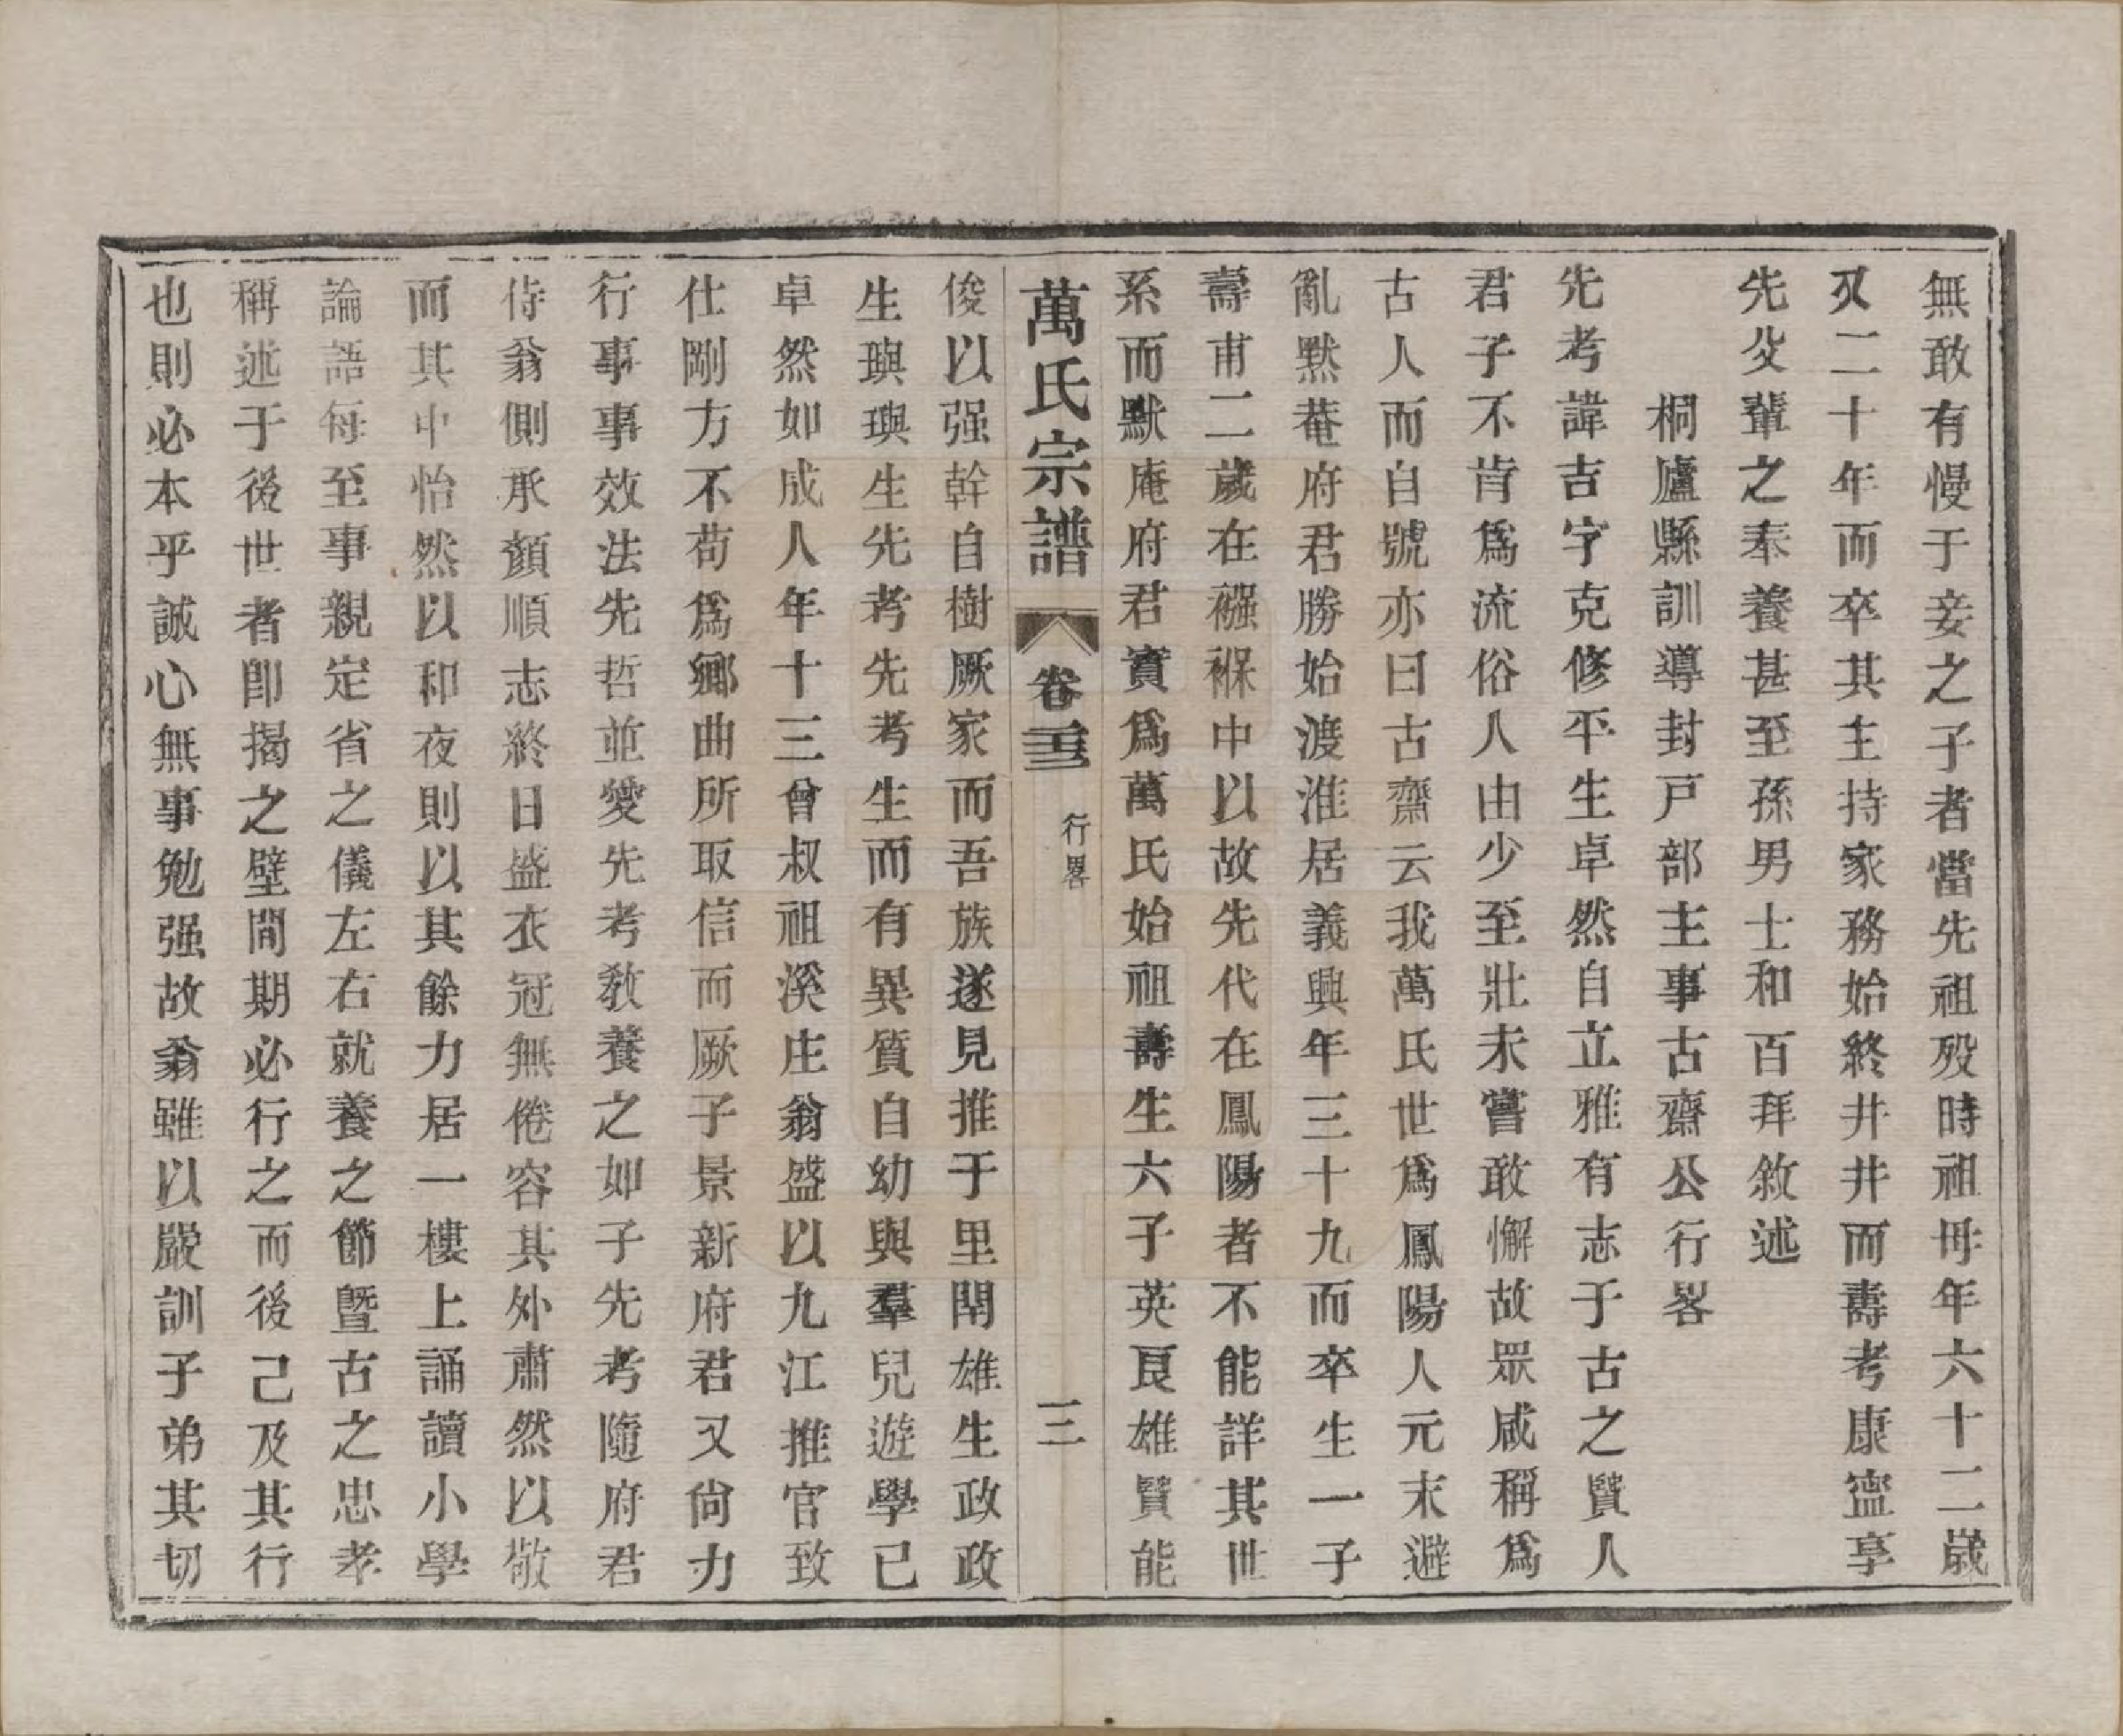 無敢有慢于妾之子者當先祖歿時祖母年六十二歲
又二十年而卒其主持家務始終井井而壽考康寍享
先父輩之奉養甚至孫男士和百拜敘述
桐廬縣訓導封戸部主事古齋公行畧
先考諱吉字克修平生卓然自立雅有志于古之賢人
君子不肯爲流俗人由少至壯未嘗敢懈故眾咸稱爲
古人而自號亦曰古齋云我萬氏世爲鳳陽人元末避
亂黙菴府君勝始渡淮居義興年三十九而卒生一子
壽甫二歲在襁褓中以故先代在鳳陽者不能詳其世
系而默庵府君實爲萬氏始祖壽生六子英良雄賢能
萬氏宗譜
卷二三
行畧
三
俊以强幹自樹厥家而吾族遂見推于里閈雄生政政
生璵璵生先考先考生而有異質自幼與羣兒遊學已
卓然如成人年十三曾叔祖溪庄翁盛以九江推官致
仕剛方不苟爲鄉曲所取信而厥子景新府君又尙力
行事事效法先哲並愛先考敎養之如子先考隨府君
侍翁側承顏順志終日盛衣冠無倦容其外肅然以敬
而其中怡然以和夜則以其餘力居一樓上誦讀小學
論語每至事親定省之儀左右就養之節曁古之忠孝
稱述于後世者卽揭之壁間期必行之而後己及其行
也則必本乎誠心無事勉强故翁雖以嚴訓子弟其切